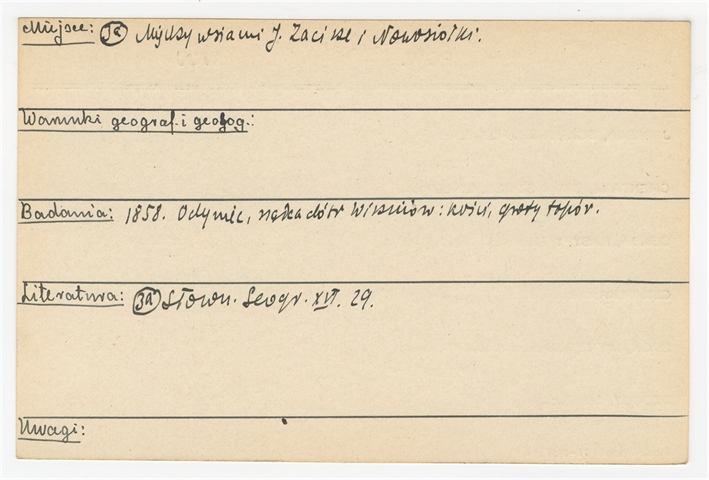 Miejsce: 3a Między wsiami J. Zacisze i Nowosiółki.
Warunki geograf. i geolog.:
Badania: 1858. Odyniec, rządca dóbr Wiszniów: kości, groty topór.
Literatura: 3a Słown. Geogr. XVI. 29.
Uwagi: